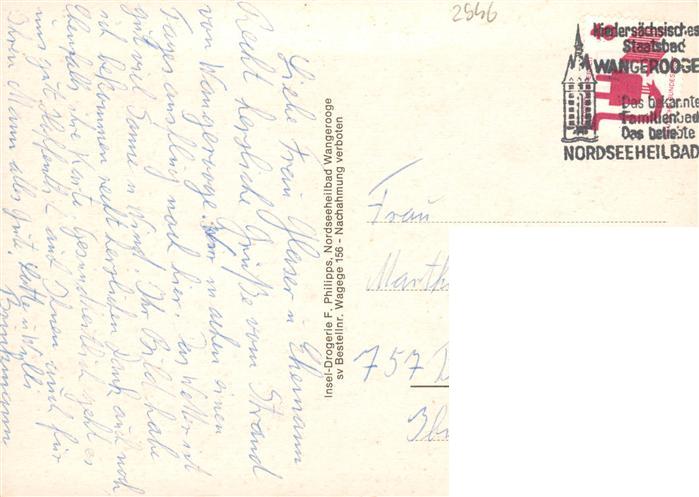 2556
Niedersächsisches
Staatsbad
WANGEROOGE
Das bekannte
Familienbad
Das beliebte
NORDSEEHEILBAD
Liebe Frau Gleser u Ehemann
Recht herzliche Grüße vom Strand
von Wangerooge. Wir machen einen
Tagesausflug nach hier. Das Wetter ist
gut viel Sonne u Wind. Ihr Bild habe
ich bekommen recht herzlichen Dank auch noch
Ebenfalls ihre Karte Gesundheitlich geht es
uns gut hoffentl. auch Ihnen und für
Ihren Mann alles Gute. Lotte u Willi
Brinkmann
Insel-Drogerie F. Philipps, Nordseeheilbad Wangerooge
sv Bestellnr. Wagege 156 - Nachahmung verboten
Frau
Marth
757